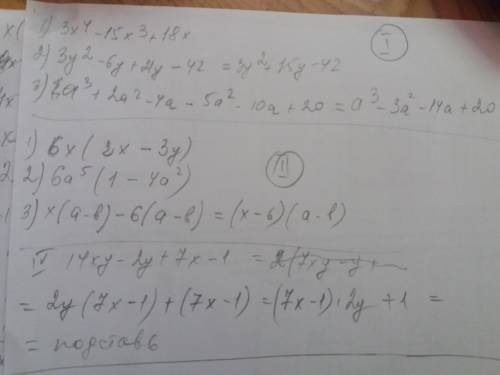 1) 3x⁴ - 15x³ + 18x
I
2) 3y² - 6y + 21y - 42 = 3y² + 15y - 42
3) a³ + 2a² - 4a - 5a² - 10a + 20 = a³ - 3a² - 14a + 20
1) 6x(2x - 3y)
II
2) 6a⁵(1 - 4a²)
3) x(a-b) - 6(a-b) = (x-6)(a-b)
IV 14xy - 2y + 7x - 1 = 2(7xy - y +
= 2y(7x-1) + (7x-1) = (7x-1)·2y + 1 =
= подставь